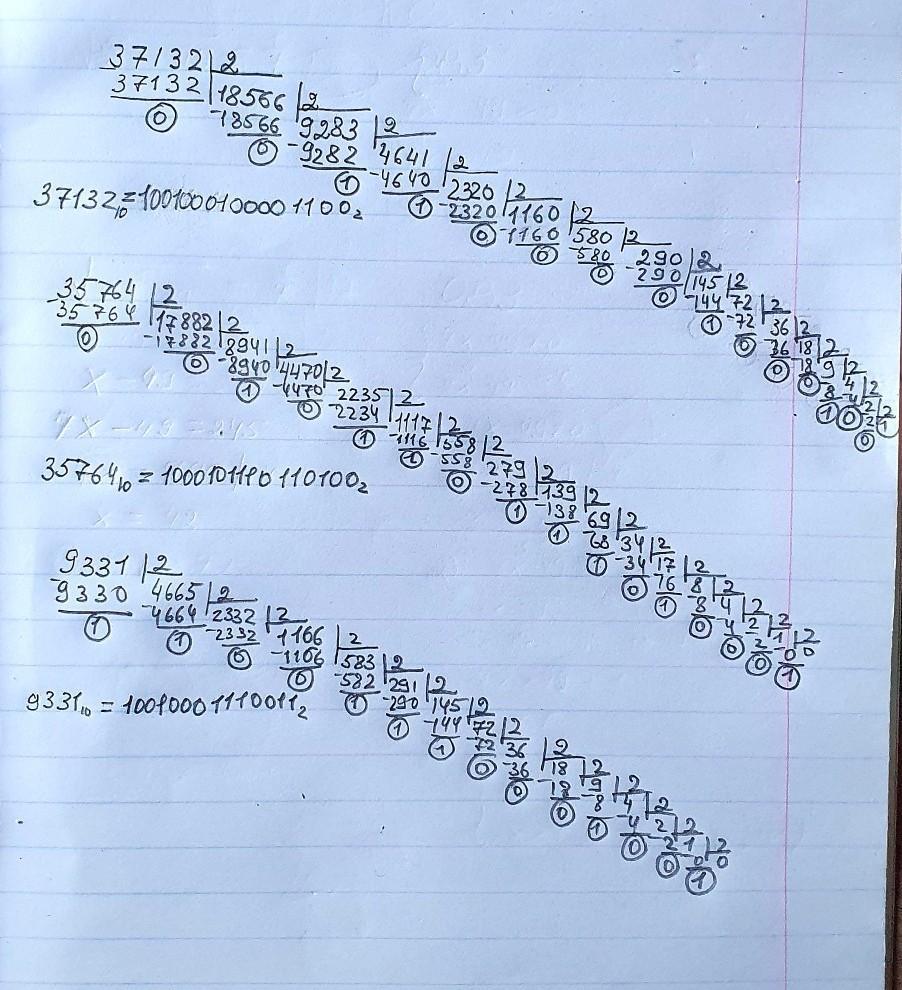 37132 | 2
37132 | 18566 | 2
0 -18566 9283 | 2
0 -9282 4641 | 2
1 -4640 2320 | 2
1 -2320 1160 | 2
0 -1160 580 | 2
0 -580 290 | 2
0 -290 145 | 2
0 -144 72 | 2
1 -72 36 | 2
0 -36 18 | 2
0 -18 9 | 2
0 -8 4 | 2
1 -4 2 | 2
0 -2 1
0
37132₁₀ = 1001000100001100₂
35764 | 2
-35764 | 17882 | 2
0 -17882 8941 | 2
0 -8940 4470 | 2
1 -4470 2235 | 2
0 -2234 1117 | 2
1 -1116 558 | 2
1 -558 279 | 2
0 -278 139 | 2
1 -138 69 | 2
1 68 34 | 2
1 -34 17 | 2
0 16 8 | 2
1 -8 4 | 2
0 -4 2 | 2
0 -2 1 | 2
0 -0 0
1
35764₁₀ = 1000101110110100₂
9331 | 2
-9330 4665 | 2
1 -4664 2332 | 2
1 -2332 1166 | 2
0 -1166 583 | 2
0 -582 291 | 2
1 -290 145 | 2
1 -144 72 | 2
1 -72 36 | 2
0 -36 18 | 2
0 -18 9 | 2
0 -8 4 | 2
1 -4 2 | 2
0 -2 1 | 2
0 -0 0
1
9331₁₀ = 10010001110011₂